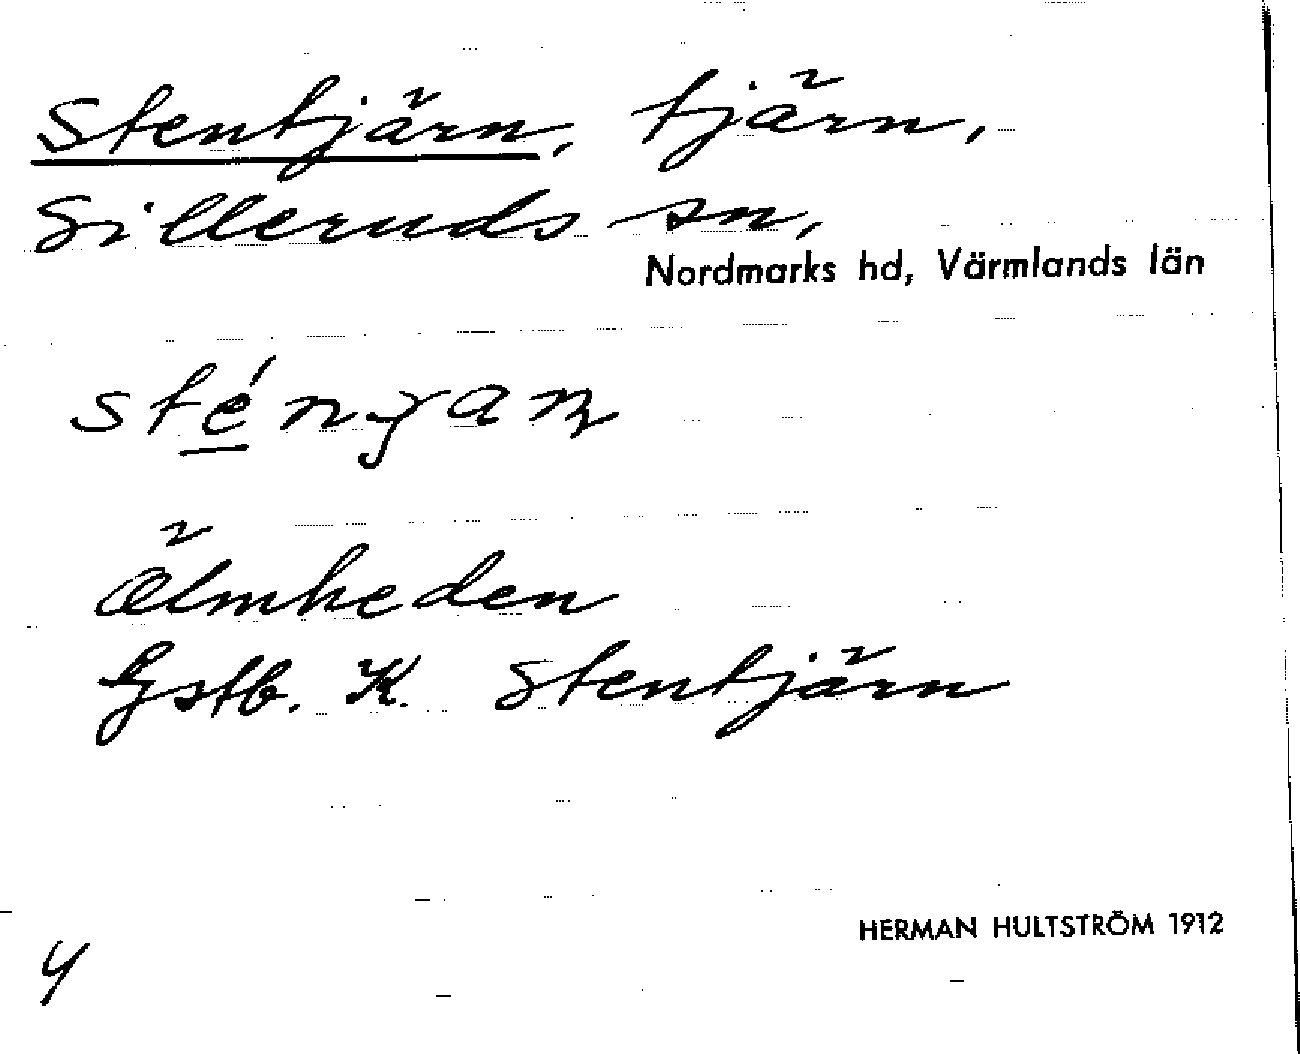 Stentjärn, tjärn,
Silleruds sn,
Nordmarks hd, Värmlands län
älmheden
Gstb. K. Stentjärn
HERMAN HULTSTRÖM 1912